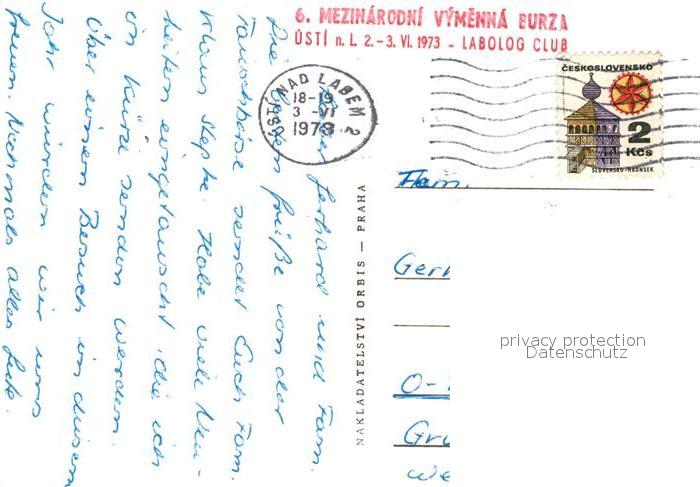 6. MEZINÁRODNÍ VÝMĚNNÁ BURZA
ÚSTÍ n. L. 2.-3. VI. 1973 - LABOLOG CLUB
ÚSTÍ NAD LABEM 2
18-19
3 -VI
1973
ČESKOSLOVENSKO
2
Kčs
SLOVENSKO-HRONSEK
Gerhard und Fam.
Die grüße von der
Tauschbörse sendet Euch Fam.
Klaus Habe viele Neu-
heiten eingetauscht, die ich
in Kürze senden werden.
Über einen Besuch in diesem
Jahr würden wir uns
freuen. Nochmals alles Gute.
NAKLADATELSTVÍ ORBIS — PRAHA
Gerh
O-
Gr
we
privacy protection
Datenschutz